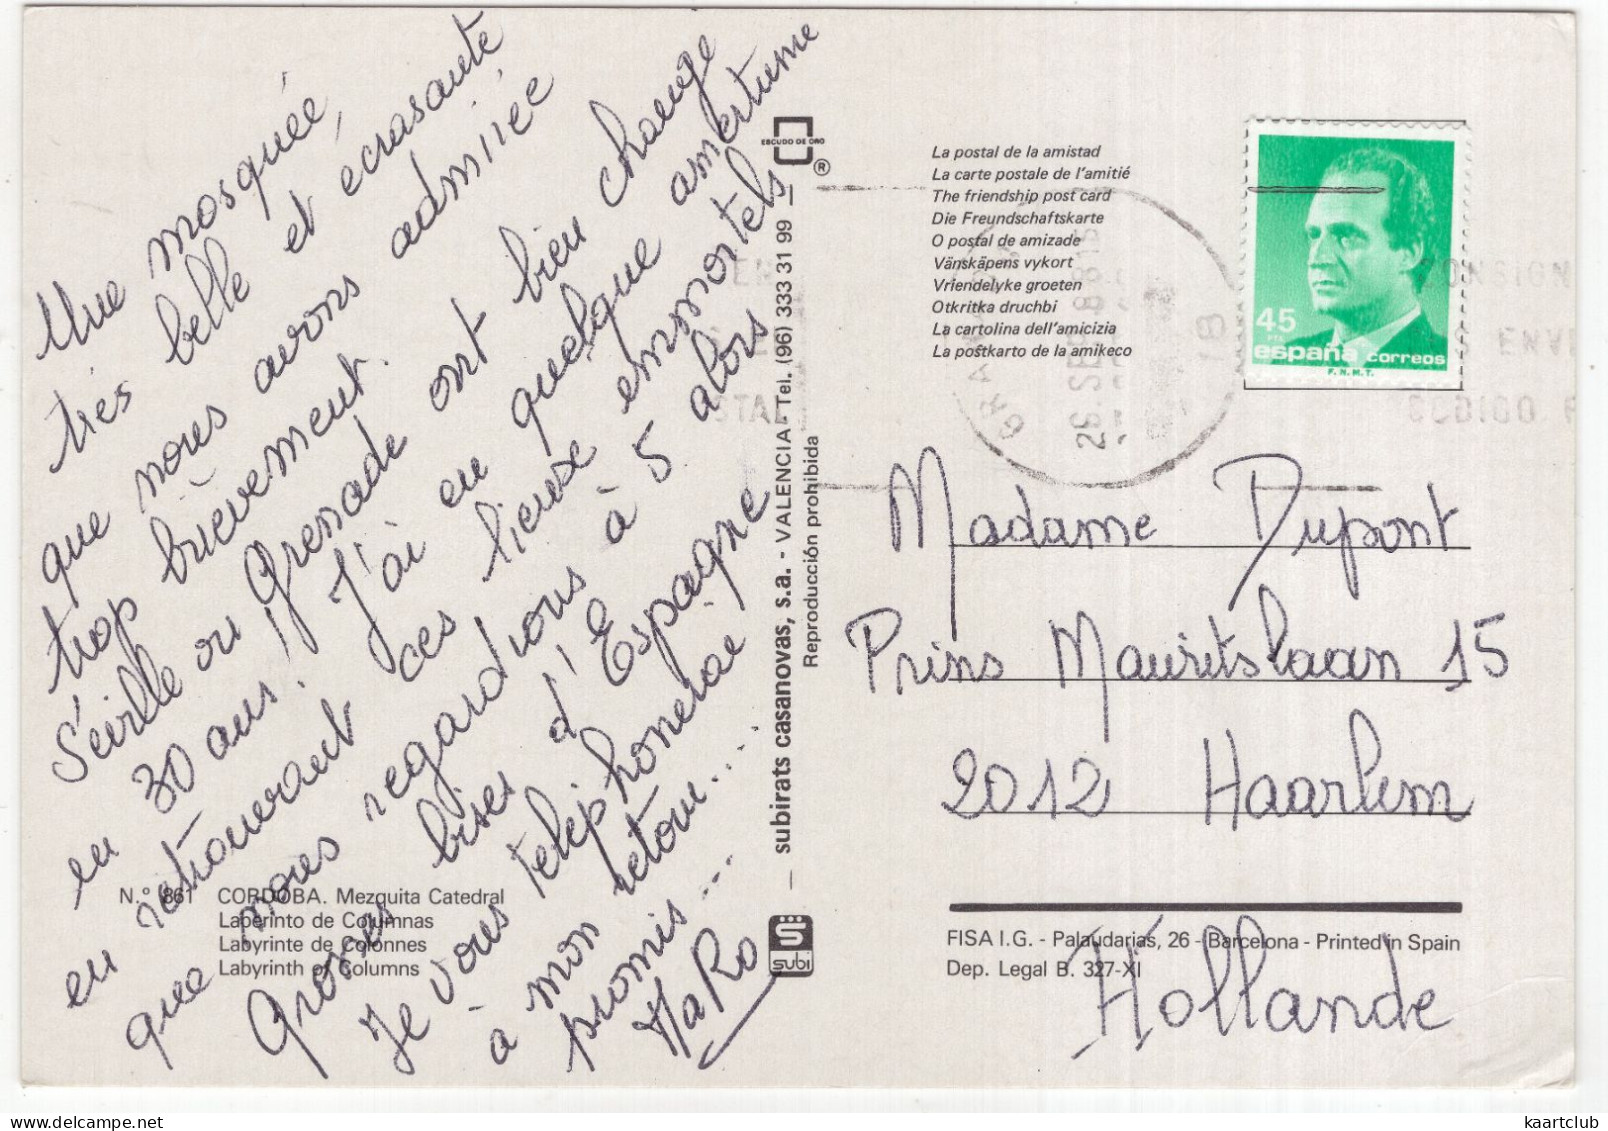 Une mosquée,
très belle et écrasante
que nous avons admirée
trop brièvement.
Séville ou Grenade ont bien changé
en 30 ans! J'ai eu quelque amertume
en retrouvant ces lieux immortels
que nous regardions à 5 alors
Grosses bises d'Espagne
Je vous téléphonerai
à mon retour....
promis...
MaRo
N.° 861 CORDOBA. Mezquita Catedral
Laberinto de Columnas
Labyrinte de Colonnes
Labyrinth of Columns
ESCUDO DE ORO
®
subirats casanovas, s.a. - VALENCIA - Tel. (96) 333 31 99
Reproducción prohibida
subi
La postal de la amistad
La carte postale de l'amitié
The friendship post card
Die Freundschaftskarte
O postal de amizade
Vänskäpens vykort
Vriendelyke groeten
Otkritka druchbi
La cartolina dell'amicizia
La poŝtkarto de la amikeco
45
PTA
españa correos
F.N.M.T.
Madame Dupont
Prins Mauritslaan 15
2012 Haarlem
Hollande
FISA I.G. - Palaudarias, 26 - Barcelona - Printed in Spain
Dep. Legal B. 327-XI
kaartclub